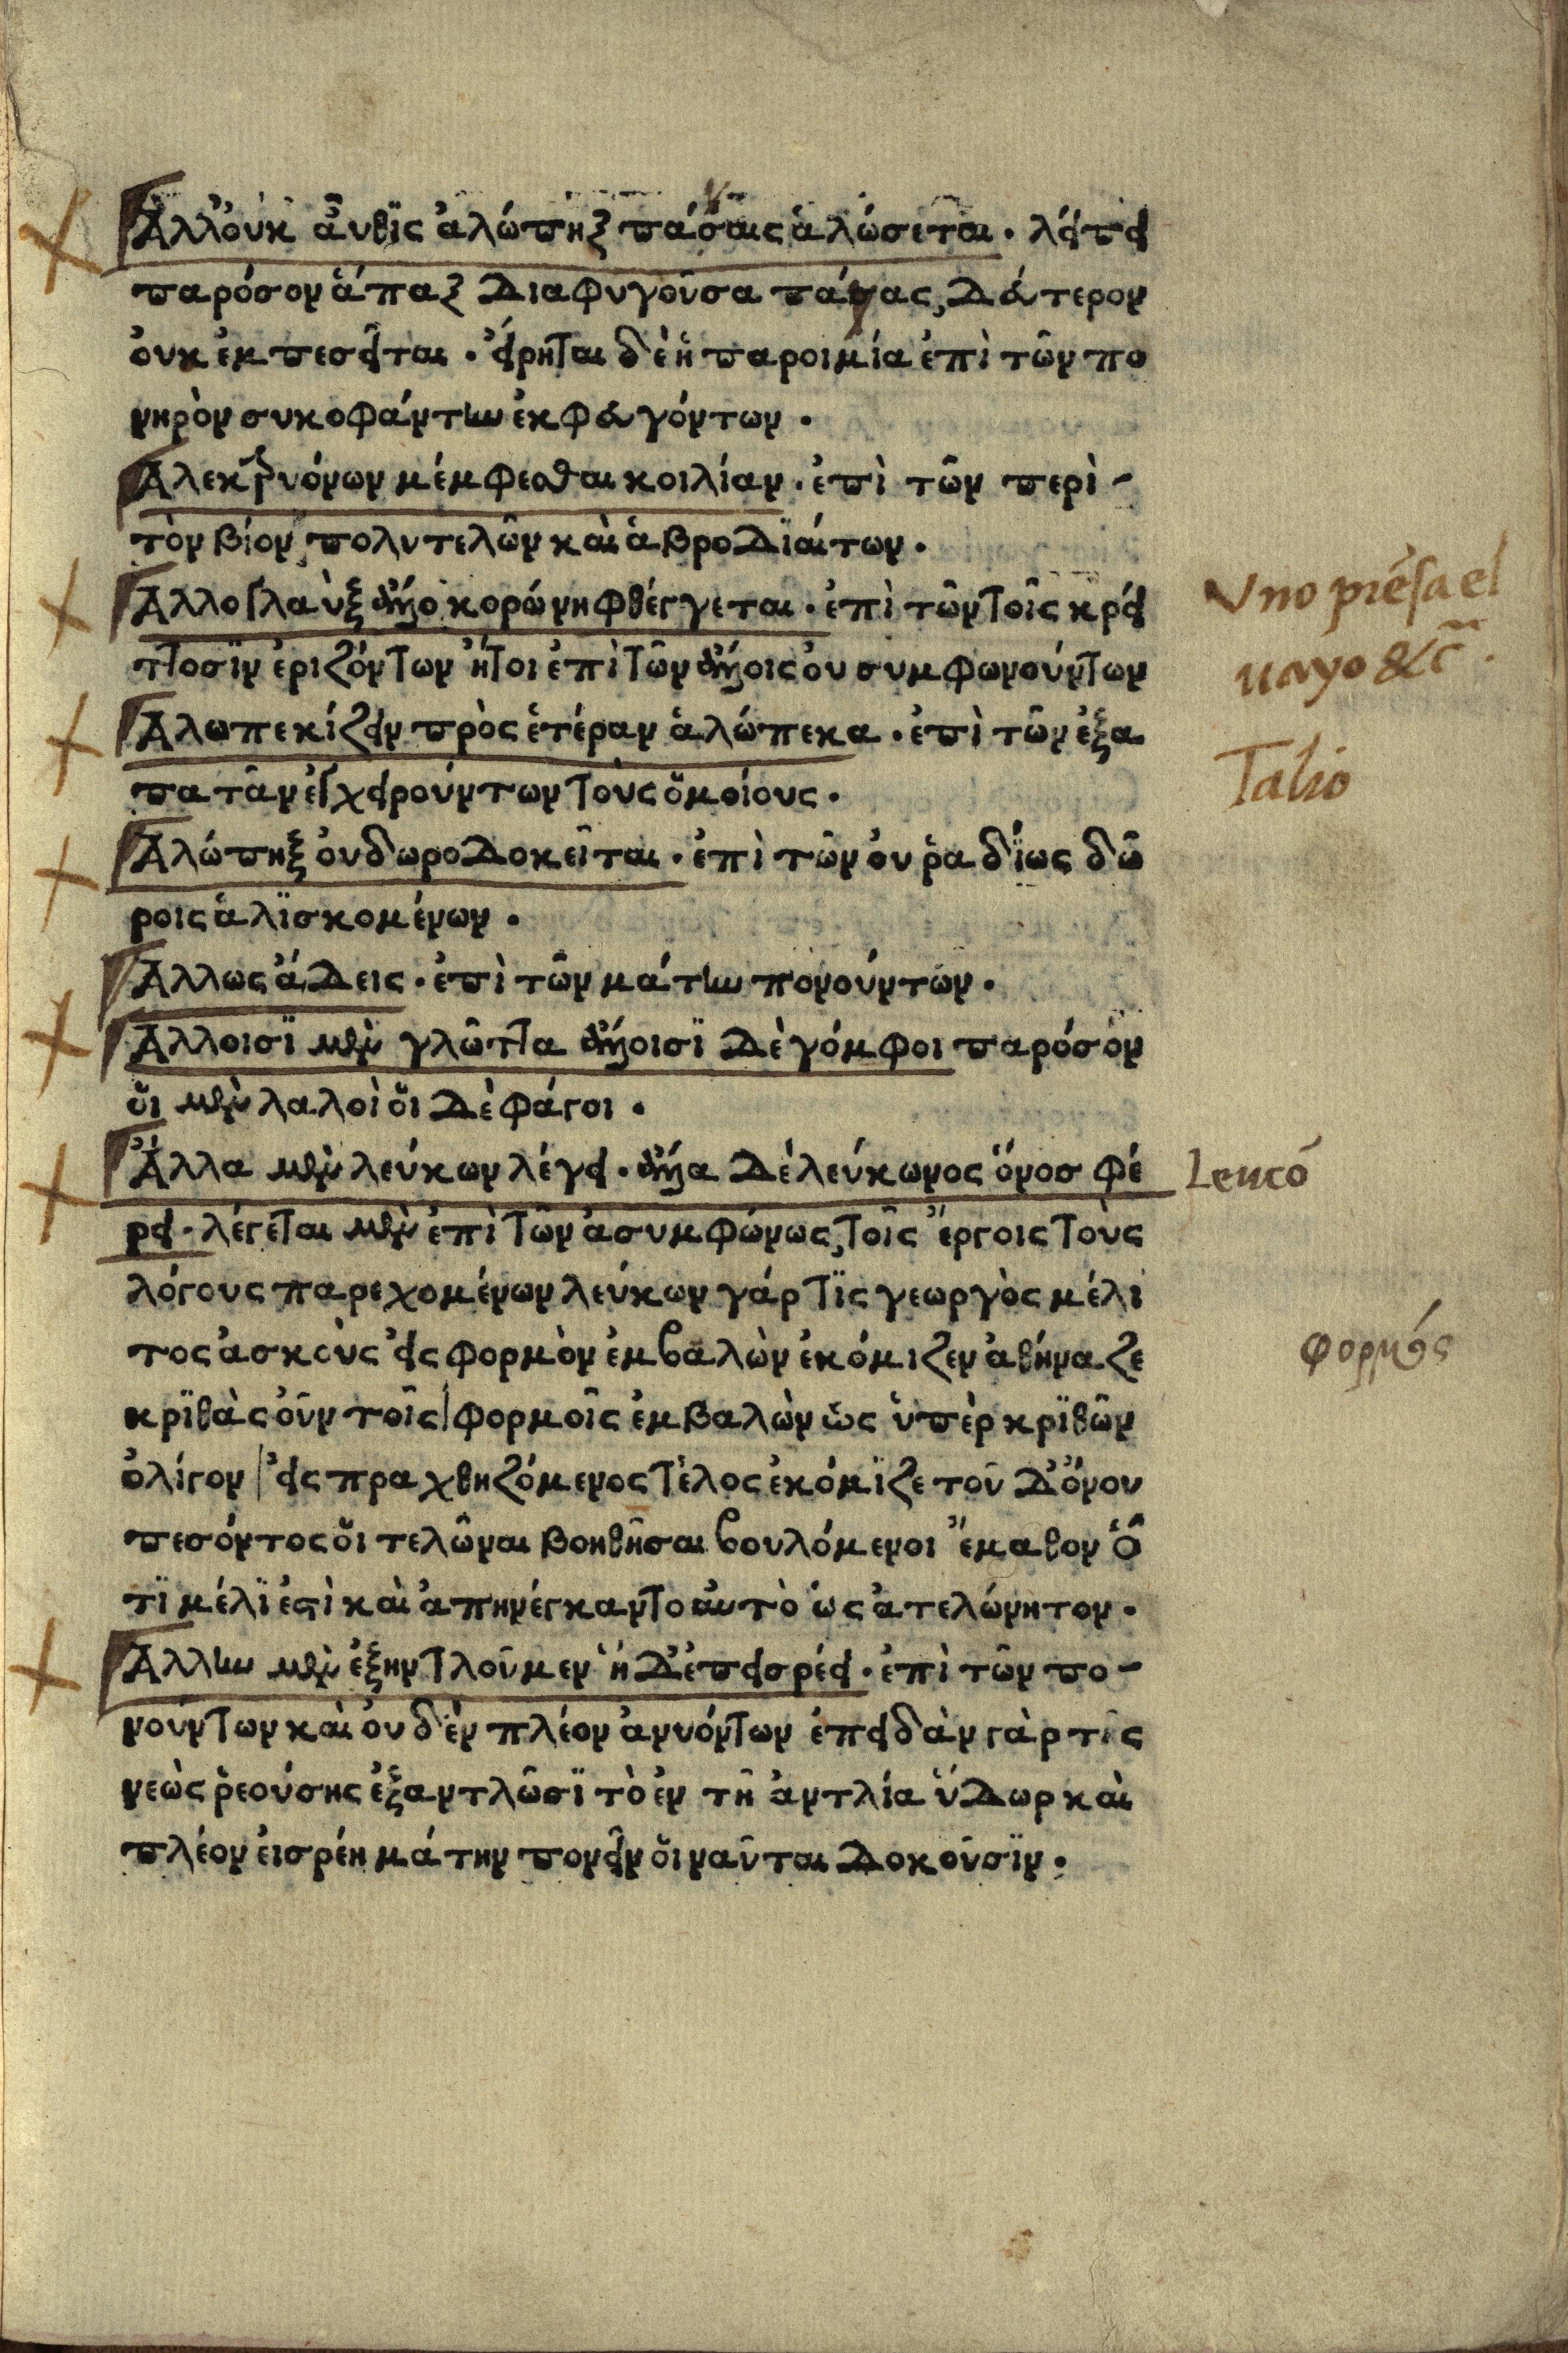 Ἀλλ' ὀυκ ἆυθϊς ἀλώπηξ πάσαις ἁλώσεται . λείπει
παρόσον ἅπαξ διαφυγοῦσα πάγας, δεύτερον
ὀυκ ἐκπεσεῖται . ἔιρηται δὲ ἡ παροιμία ἐπὶ τῶν πο
νηρὸν συκοφάντην ἐκφευγόντων .
Ἀλεκτρυόνων μέμφεσθαι κοιλίαν . ἐπὶ τῶν περὶ -
τὸν βίον πολυτελῶν καὶ ἁβροδϊαίτων .
Ἄλλο γλαὺξ ἄλλο κορώνη φθέγγεται . ἐπὶ τῶν τοῖς κρεί
ττοσϊν ἐριζόντων ἤτοι ἐπὶ τῶν ἄλλοις ὀυ συμφωνούντων
Ἀλωπεκίζειν πρὸς ἑτέραν ἀλώπεκα . ἐπὶ τῶν ἐξα
πατᾶν ἐγχειρούντων τοὺς ὅμοίους .
Ἀλώπηξ ὀυ δωροδοκεῖται . ἐπὶ τῶν ὀυ ῥαδΐως δώ
ροις ἁλϊσκομένων .
Ἄλλως ἄδεις . ἐπὶ τῶν μάτην πονούντων .
Ἄλλοισϊ μὲν γλῶττα ἄλλοισϊ δὲ γόμφοι παρόσὸν
ὅι μὲν λαλοὶ ὅι δὲ φάγοι .
Ἄλλα μὲν λεύκων λέγει . ἄλλα δὲ λεύκωνος ὄνοσ φέ
ρει . λέγεται μὲν ἐπὶ τῶν ἀσυμφώνως, τοῖς ἔργοις τοὺς
λόγους παρεχομένων λεύκων γάρ τϊς γεωργὸς μέλι
τος ἀσκοὺς ἐις φορμὸν ἐμβαλὼν ἐκόμιζεν ἀθήναζε
κρϊθὰς ὀῦν τοῖς φορμοῖς ἐμβαλὼν ὡς ὑπὲρ κρϊθῶν
ὀλίγον ἐις πραχθηζόμενος τέλος ἐκόμϊζε τοῦ δ' ὄνου
πεσόντος ὅι τελῶναι βοηθῆσαι βουλόμενοι ἔμαθον ὅ
τϊ μέλϊ ἐστὶ καὶ ἀπηνέγκαντο ἀυτὸ ὡς ἀτελώνητον .
Ἄλλην μὲν ἐξηντλοῦμεν ἡ δ' ἐπεισρέει . ἐπὶ τῶν πο -
νούντων καὶ ὀυδὲν πλέον ἀνυόντων ἐπειδὰν γὰρ τὶς
νεὼς ῥεούσης ἐξαντλῶσϊ τὸ ἐν τῆ ἀντλία ὕδωρ καὶ
πλέον ἐισρέη μάτην πονεῖν ὅι ναῦται δοκοῦσϊν .
Vno piẽsa el
uayo &c̃ .
Talio
Leucō
φορμός